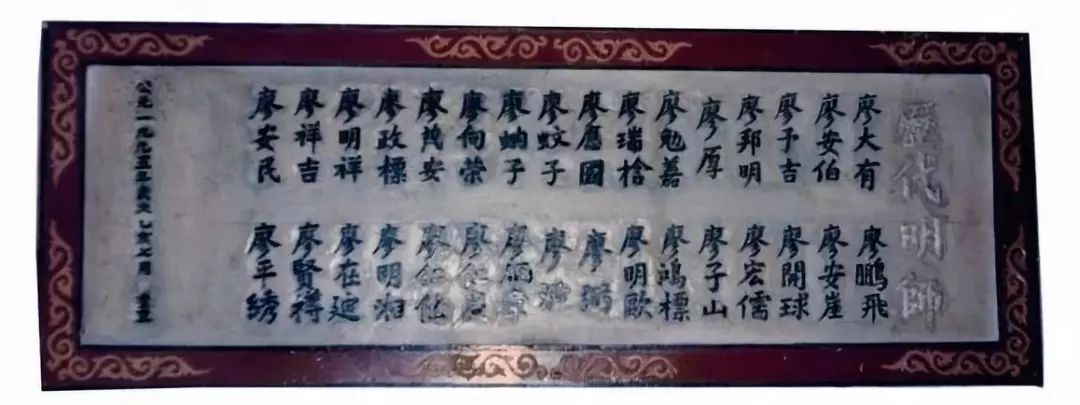 歷代明師
廖大有
廖安伯
廖予吉
廖邦明
廖厚
廖勉
廖瑞槍
廖應國
廖蚊子
廖蚋子
廖向榮
廖茂安
廖政標
廖明祥
廖祥吉
廖安民
廖鵬飛
廖安崖
廖開球
廖宏儒
廖子山
廖鴻標
廖明歐
廖
廖
廖炳
廖仁
廖
廖明湘
廖在廷
廖賢得
廖平綉
公元一九九五年歲次乙亥七月